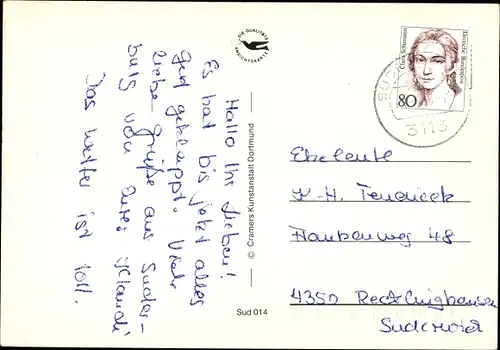 Hallo Ihr Lieben!
Es hat bis jetzt alles
gut geklappt. Viele
liebe Grüße aus Suder-
burg von Eurer
Das Wetter ist toll.
DIE QUALITÄTS
ANSICHTSKARTE
© Cramers Kunstanstalt Dortmund
Sud 014
Clara Schumann
Deutsche Bundespost
80
3113
Eheleute
K-H.
48
4350 Recklinghausen
Suderwich